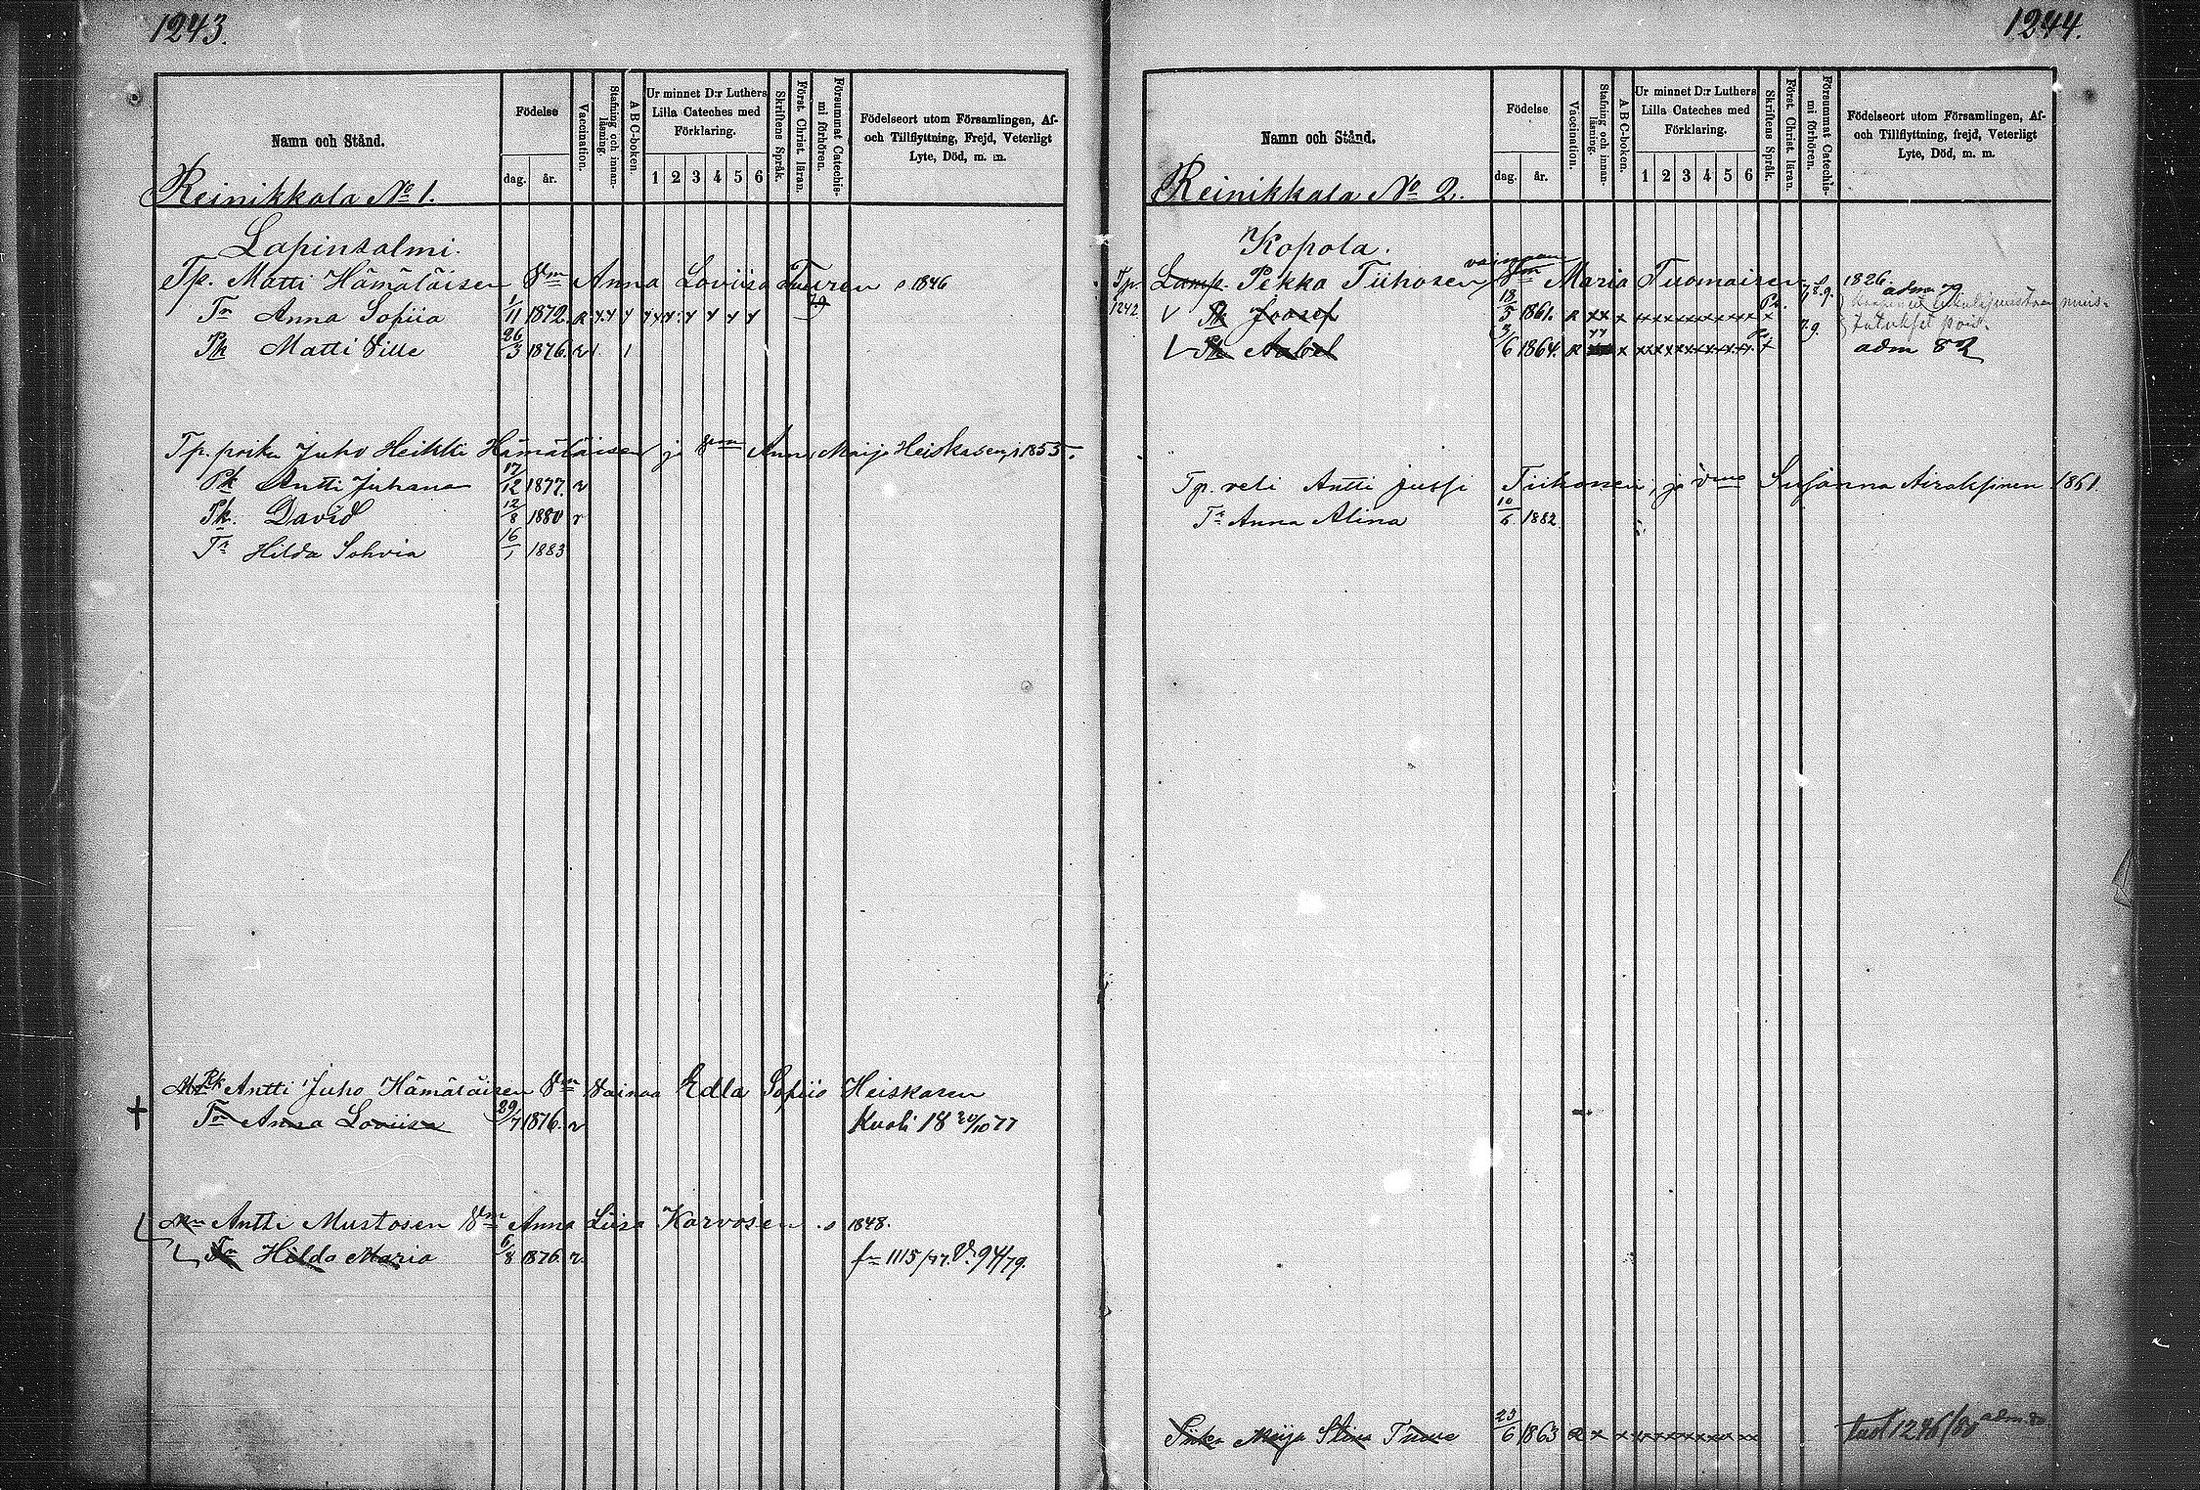 1243.
Namn och Stånd.
Födelse
dag.
år.
Vaccination.
Stafning och innanläsning.
ABC-boken.
Ur minnet D:r Luthers
Lilla Cateches med
Förklaring.
1 2 3 4 5 6
Skriftens Språk.
Förståt Christ. läran.
Försummat Catechismi förhören.
Födelseort utom Församlingen, Af-
och Tillflyttning, Frejd, Veterligt
Lyte, Död, m. m.
Reinikkala No 1.
Lapinsalmi.
Tp. Matti Hämäläisen Vm Anna Loviisa Tuuren s 1846
Tr Anna Sofiia 1/11 1872.
79
Pk Matti Ville 26/3 1876
Tp. poika Juho Heikki Hämäläisen ja Vmo Anna Maija Heiskasen s 1855.
Pk Antti Juhana 17/12 1877.
Pk. David 12/8 1880
Tr Hilda Sohvia 16/1 1883
Pk Antti Juho Hämäläisen Vm Vainaa Edla Sofiia Heiskasen
Tr Anna Loviisa 29/7 1876. Kuoli 18 20/10 77
Antti Mustosen Vm Anna Liisa Karvosen s 1848.
Tr Hilda Maria 6/8 1876. 1115/77. 94/79.
1244.
Namn och Stånd.
Födelse
dag.
år.
Vaccination.
Stafning och innanläsning.
ABC-boken.
Ur minnet D:r Luthers
Lilla Cateches med
Förklaring.
1 2 3 4 5 6
Skriftens Språk.
Först. Christ. läran.
Försummat Catechismi förhören.
Födelseort utom Församlingen, Af-
och Tillflyttning, frejd, Veterligt
Lyte, Död, m. m.
Reinikkala No 2.
Kopola.
Tp. Lamp. Pekka Tiihosen vainaan Vm Maria Tuomaisen 1826.
1242 Pk Joosef 13/5 1861. adm 79
Pk Aabel 3/6 1864. adm 82
Tp. veli Antti Jussi Tiihonen, ja Vmo Susanna Airaksinen 1861
Tr Anna Alina 10/6 1882
Maija Stina 23/6 1863 1246/80 adm. 80